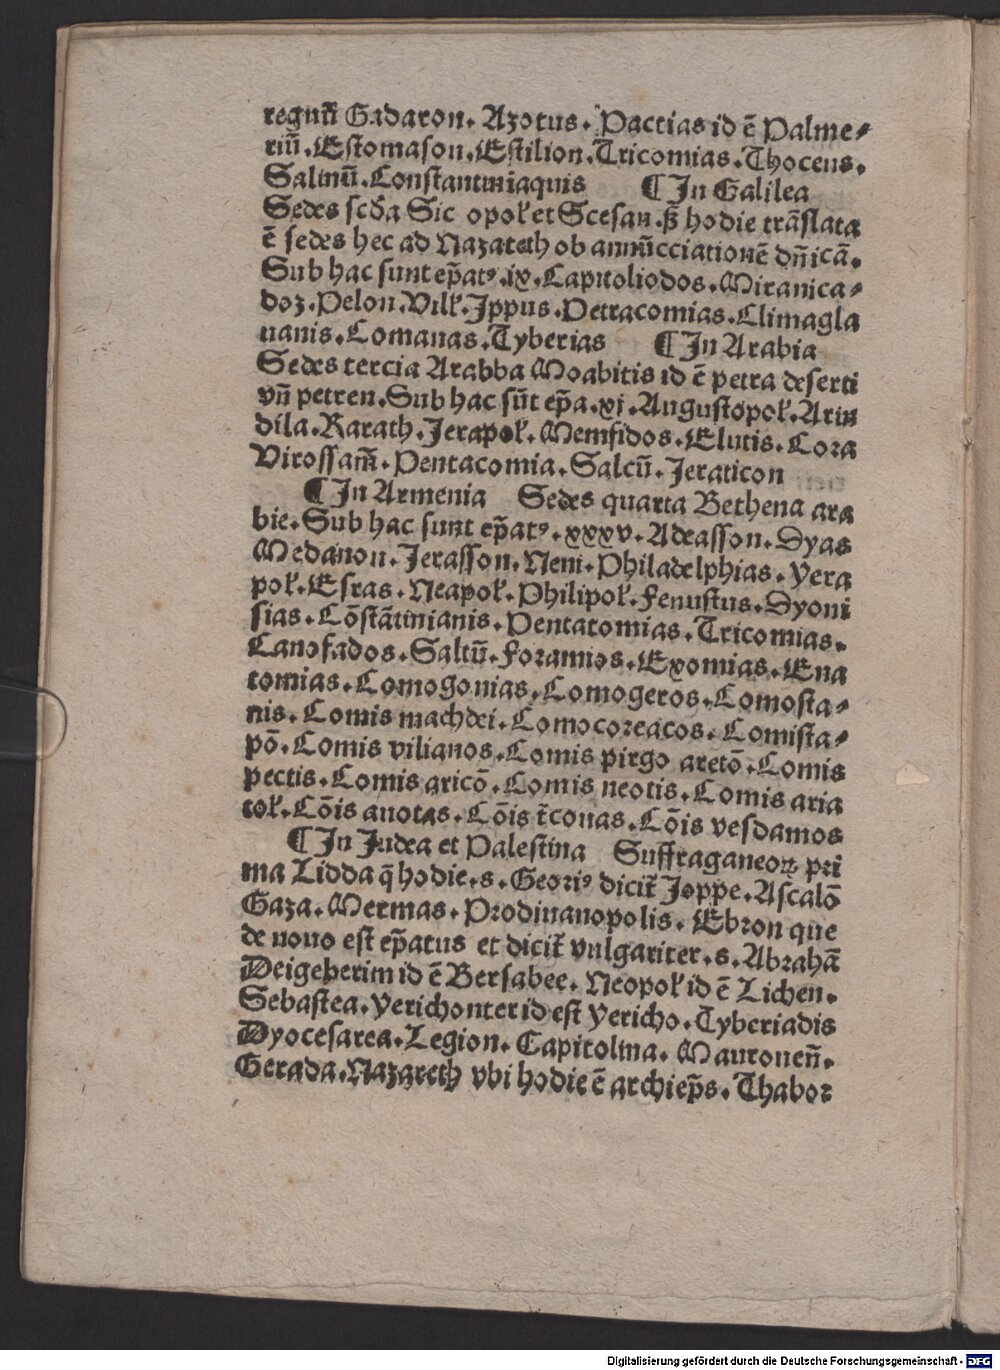 regnū Gadaron. Azotus. Pactias id ē Palme⸗
riū. Estomason. Estilion. Tricomias. Thoceus.
Salinū. Constantiniaquis ¶ In Galilea
Sedes scd̄a Sic opol̓ et Scesan. ꝓ hodie trāslata
ē sedes hec ad Nazareth ob annūcciationē dn̄icā.
Sub hac sunt ep̄atꝰ .ix. Capitoliodos. Miranica⸗
doz. Pelon. Vill̓. Jppus. Petracomias. Climagla
uanis. Comanas. Tyberias ¶ In Arabia
Sedes tercia Arabba Moabitis id ē petra deserti
vn̄ petren. Sub hac sūt ep̄a .xi. Augustopol̓. Arin
dila. Rarath. Jerapol̓. Memfidos. Elutis. Cora
Virossam̄. Pentacomia. Salcū. Jeraticon
¶ In Armenia Sedes quarta Bethena ara
bie. Sub hac sunt ep̄atꝰ .xxxv. Adrasson. Dyas
Medanon. Jerasson. Neni. Philadelphias. Yera
pol̓. Esras. Neapol̓. Philipol̓. Fenustus. Dyoni
sias. Cōstātinianis. Pentatomias. Tricomias.
Canofados. Saltū. Foramios. Exomias. Ena
tomias. Comogonias. Comogeros. Comosta⸗
nis. Comis machdei. Comocoreacos. Comista⸗
pō. Comis vilianos. Comis pirgo aretō. Comis
pectis. Comis aricō. Comis neotis. Comis aria
tol̓. Cōis anotas. Cōis t̄conas. Cōis vesdamos
¶ In Judea et Palestina Suffraganeoꝝ pri
ma Lidda q̄ hodie .s. Georiꝰ dicit̄ Joppe. Ascalō
Gaza. Mermas. Prodinanopolis. Ebron que
de nouo est ep̄atus et dicit̄ vulgariter .s. Abrahā
Deigeberim id ē Bersabee. Neopol̓ id ē Lichen.
Sebastea. Yerichonter id est Yericho. Tyberiadis
Dyocesarea. Legion. Capitolina. Mauronen̄.
Gerada. Nazareth vbi hodie ē archiep̄s. Thabor
Digitalisierung gefördert durch die Deutsche Forschungsgemeinschaft - DFG